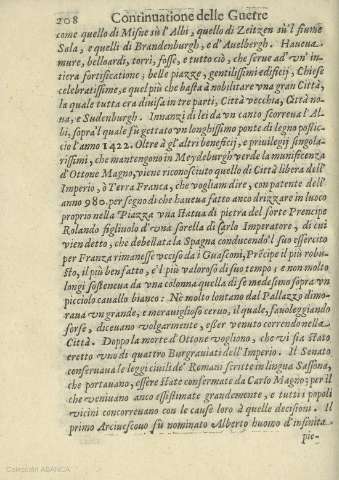 208 Continuatione delle Guerre
come quello di Misne sù l'Albi, quello di Zeitzen sù'l fiume
Sala, e quelli di Brandenburgh, e d'Auelbergh. Haueua
mure, belloardi, torri, fosse, e tutto ciò, che serue ad vn'in
tiera fortificatione; belle piazze, gentilissimi edificij, Chiese
celebratissime, e quel più che basta à nobilitare vna gran Città,
la quale tutta era diuisa in tre parti, Città vecchia, Città no-
ua, e Sudenburgh. Innanzi di lei da vn canto scorreua l'Al
bi, sopra'l quale fù gettato vn longhissimo ponte di legno posstic-
cio l'anno 1422. Oltre à gl'altri beneficij, e priuilegij singola-
rissimi, che mantengono in Meydeburgh verde la munificenza
d'Ottone Magno, viene riconosciuto quello di Città libera dell'
Imperio, ò Terra Franca, che vogliam dire, con patente dell'
anno 980. per segno di che haueua fatto anco drizzare in luoco
proprio nella Piazza vna statua di pietra del forte Prencipe
Rolando figliuolo d'vna sorella di Carlo Imperatore, di cui
vien detto, che debellata la Spagna conducendo'l suo essercito
per Franza rimanesse vcciso da i Guasconi, Prēcipe il più robu-
sto, il più ben fatto, e'l più valoroso di suo tempo; e non molto
longi sosteneua da vna colonna quella di se medesemo sopra vn
picciolo cauallo bianco: Nè molto lontano dal Pallazzo dimo-
raua vn grande, e meraviglioso ceruo, il quale, fauoleggiando
forse, diceuano volgarmente, esser venuto correndo nella
Città. Doppo la morte d'Ottone vogliono, che vi sia stato
eretto vno di quattro Burgrauiati dell'Imperio. Il Senato
conseruaua le leggi ciuili de' Romani scritte in lingua Sassona,
che portauano, essere state confermate da Carlo Magno; per il
che veniuano anco essistimate grandemente, e tutti i popoli
vicini concorreuano con le cause loro à quelle decisioni. Il
primo Arciuescouo fù nominato Alberto huomo d'infinita
pie-
Colección ABANCA